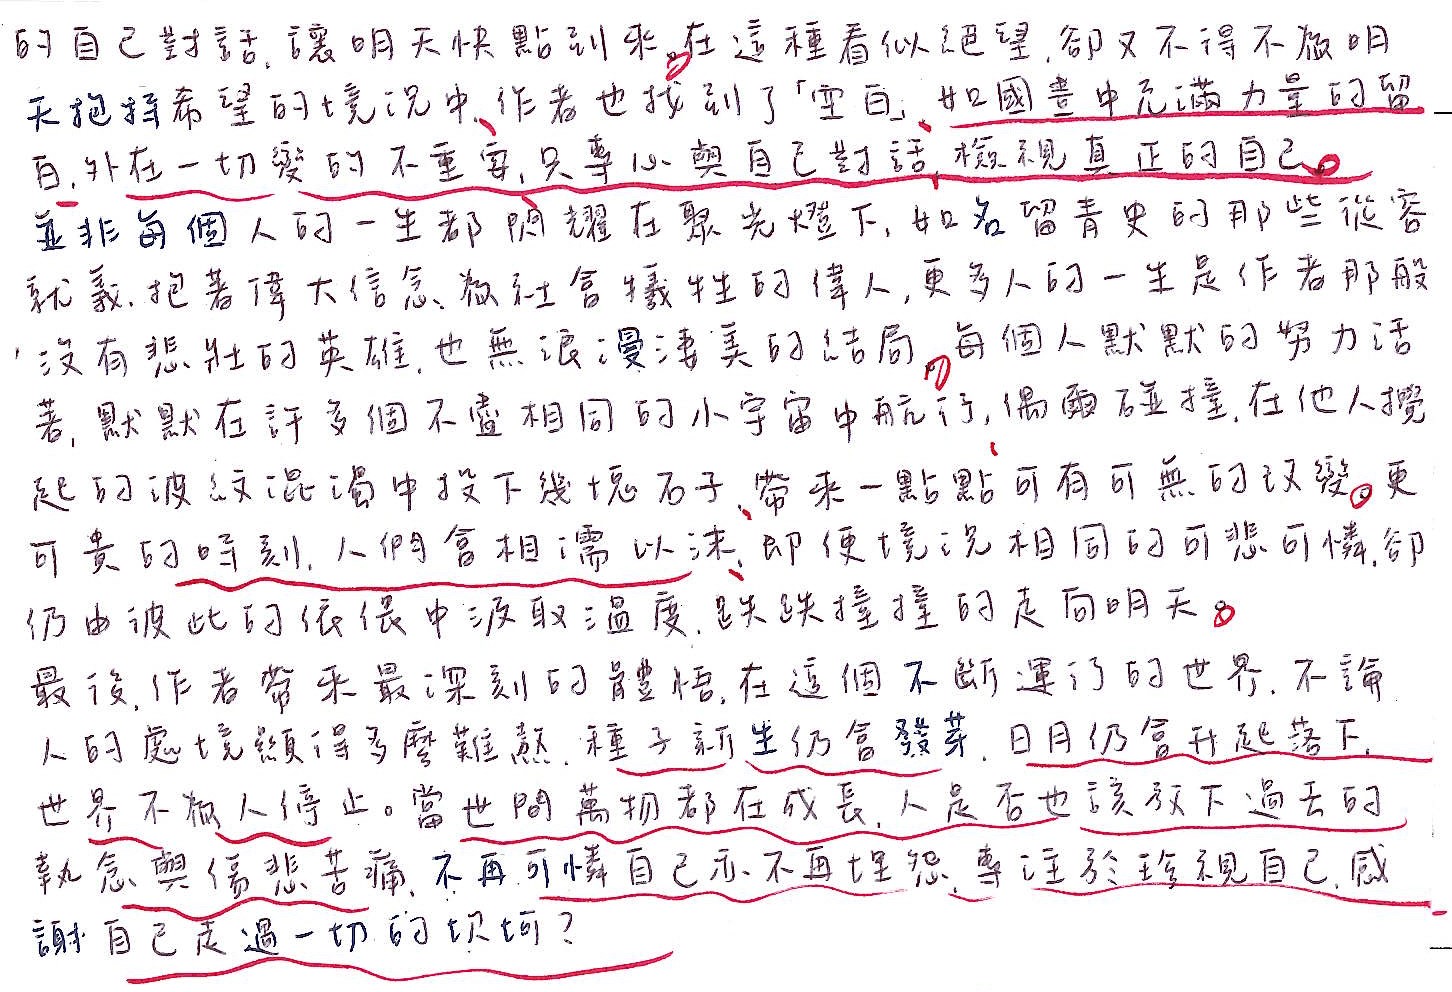 的自己對話,讓明天快點到來。在這種看似絕望,卻又不得不做明
天抱持希望的境況中,作者也找到了「空白」,如國畫中充滿力量的留
白,外在一切變的不重要,只專心與自己對話,檢視真正的自己。
並非每個人的一生都閃耀在聚光燈下,如名留青史的那些從容
就義,抱著偉大信念、做社會犧牲的偉人,更多人的一生是作者那般
沒有悲壯的英雄,也無浪漫淒美的結局,每個人默默的努力活
著,默默在許多個不盡相同的小宇宙中航行,偶爾碰撞,在他人攪
起的波紋混濁中投下幾塊石子,帶來一點點可有可無的改變。更
可貴的時刻,人們會相濡以沫,即便境況相同的可悲可憐,卻
仍由彼此的依偎中汲取溫度,跌跌撞撞的走向明天。
最後,作者帶來最深刻的體悟,在這個不斷運行的世界,不論
人的處境顯得多麼難熬,種子新生仍會發芽,日月仍會升起落下,
世界不做人停止。當世間萬物都在成長,人是否也該放下過去的
執念與傷悲苦痛,不再可憐自己亦不再埋怨,專注於珍視自己,感
謝自己走過一切的坎坷?